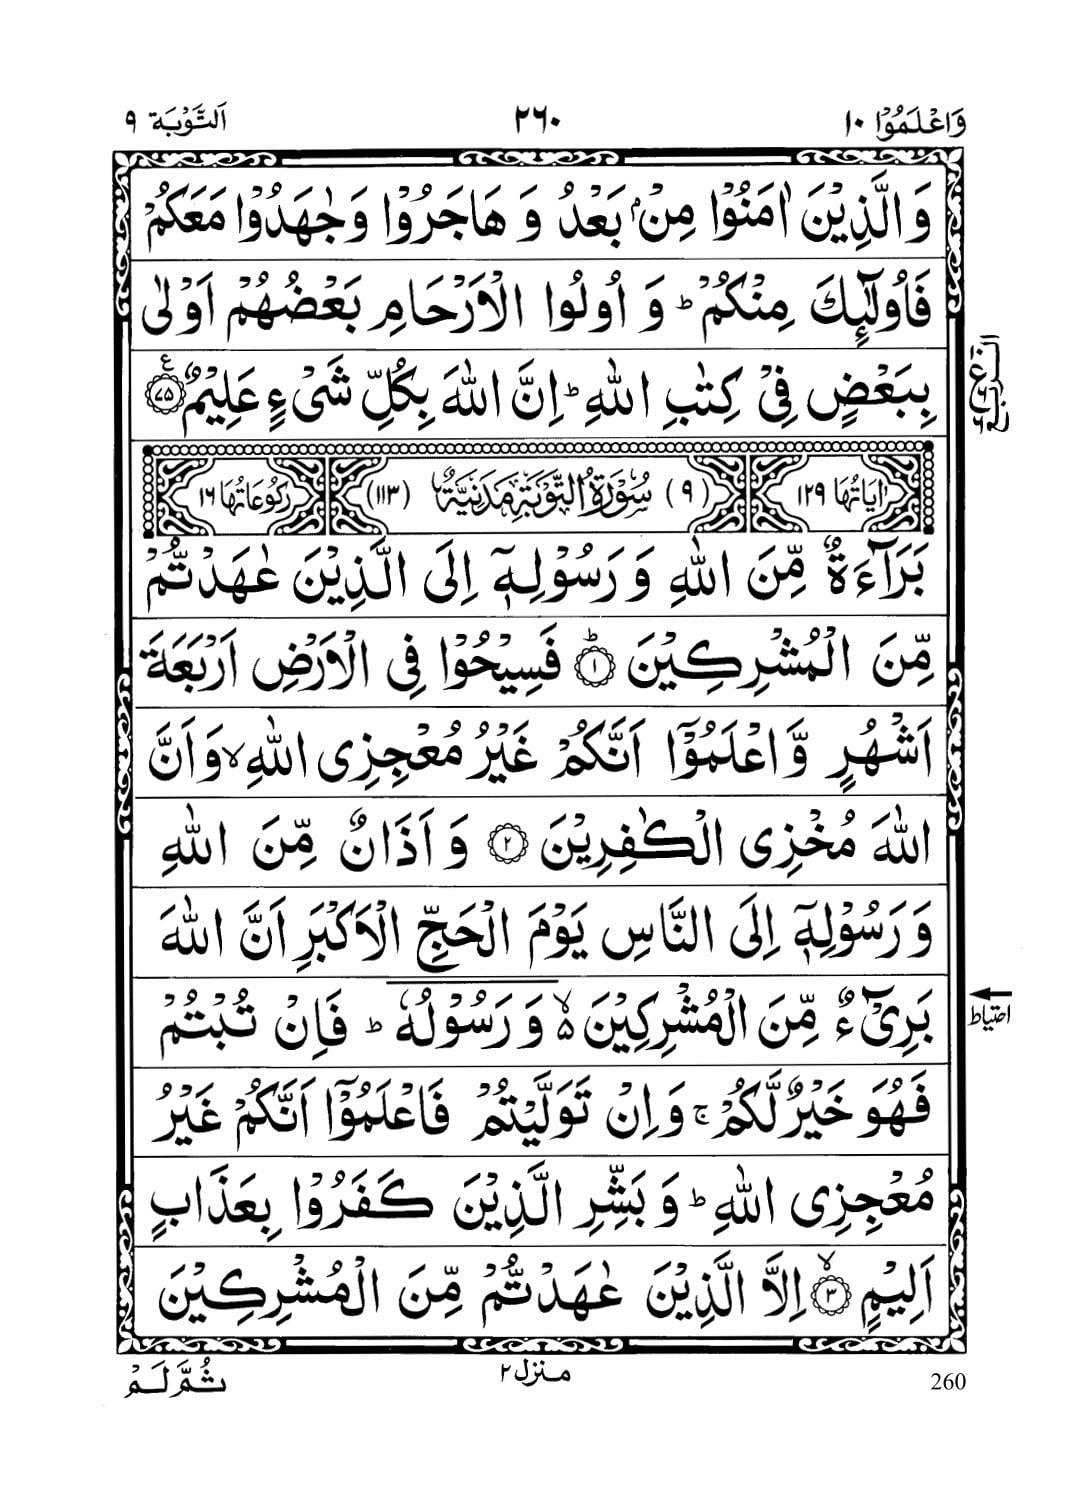 وَاعْلَمُوْٓا ۱۰ ۲۶۰ اَلتَّوْبَة ۹
وَالَّذِيْنَ اٰمَنُوْا مِنْۢ بَعْدُ وَ هَاجَرُوْا وَجٰهَدُوْا مَعَكُمْ
فَاُولٰٓئِكَ مِنْكُمْ ؕ وَ اُولُوا الْاَرْحَامِ بَعْضُهُمْ اَوْلٰى
بِبَعْضٍ فِيْ كِتٰبِ اللّٰهِ ؕ اِنَّ اللّٰهَ بِكُلِّ شَيْءٍ عَلِيْمٌ ۷۵ ع
اٰيَاتُهَا ۱۲۹ (۹) سُوْرَةُ التَّوْبَةِ مَدَنِيَّةٌ (۱۱۳) رُكُوْعَاتُهَا ۱۶
بَرَآءَةٌ مِّنَ اللّٰهِ وَ رَسُوْلِهٖۤ اِلَى الَّذِيْنَ عٰهَدْتُّمْ
مِّنَ الْمُشْرِكِيْنَ ؕ ۱ فَسِيْحُوْا فِي الْاَرْضِ اَرْبَعَةَ
اَشْهُرٍ وَّ اعْلَمُوْۤا اَنَّكُمْ غَيْرُ مُعْجِزِي اللّٰهِ ۙ وَ اَنَّ
اللّٰهَ مُخْزِي الْكٰفِرِيْنَ ۲ وَ اَذَانٌ مِّنَ اللّٰهِ
وَ رَسُوْلِهٖۤ اِلَى النَّاسِ يَوْمَ الْحَجِّ الْاَكْبَرِ اَنَّ اللّٰهَ
بَرِيْٓءٌ مِّنَ الْمُشْرِكِيْنَ ۙ۬ وَ رَسُوْلُهٗ ؕ فَاِنْ تُبْتُمْ
فَهُوَ خَيْرٌ لَّكُمْ ۚ وَ اِنْ تَوَلَّيْتُمْ فَاعْلَمُوْۤا اَنَّكُمْ غَيْرُ
مُعْجِزِي اللّٰهِ ؕ وَ بَشِّرِ الَّذِيْنَ كَفَرُوْا بِعَذَابٍ
اَلِيْمٍ ۙ ۳ اِلَّا الَّذِيْنَ عٰهَدْتُّمْ مِّنَ الْمُشْرِكِيْنَ
احتیاط
260 منزل ۲ ثُمَّ لَمْ